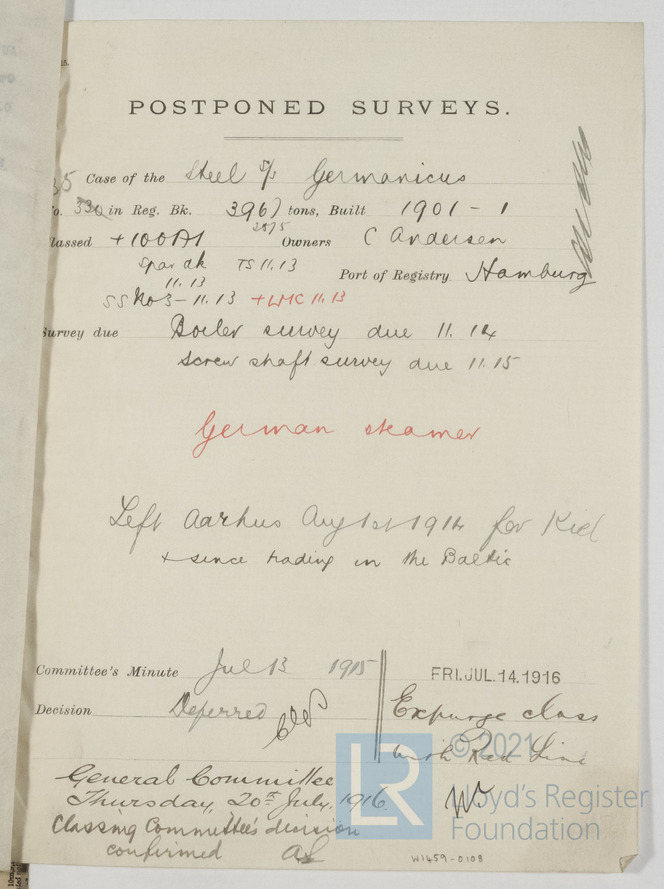 POSTPONED SURVEYS.
35 Case of the Steel S/s Germanicus
o. 330 in Reg. Bk. 3967 tons, Built 1901 - 1
2875
lassed +100A1 Owners C Andersen
Spar dk TS 11.13
11.13
Port of Registry Hamburg
SS No3 - 11.13 +LMC 11.13
Survey due Boiler survey due 11.14
Screw shaft survey due 11.15
German steamer
Left Aarhus Aug 1st 1914 for Kiel
+ since trading in the Baltic
Committee's Minute Jul 13 1915
FRI. JUL. 14. 1916
Decision Deferred
Expunge class
with Red Line
General Committee
Thursday, 20th July, 1916
Classing Committee's decision
confirmed
© 2021
LR
Lloyd's Register
Foundation
W1459-0108